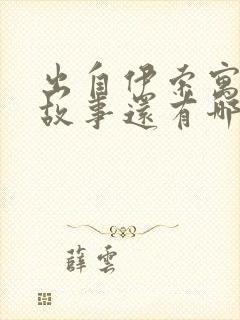 出自伊索寓
故事還有哪
薛雲